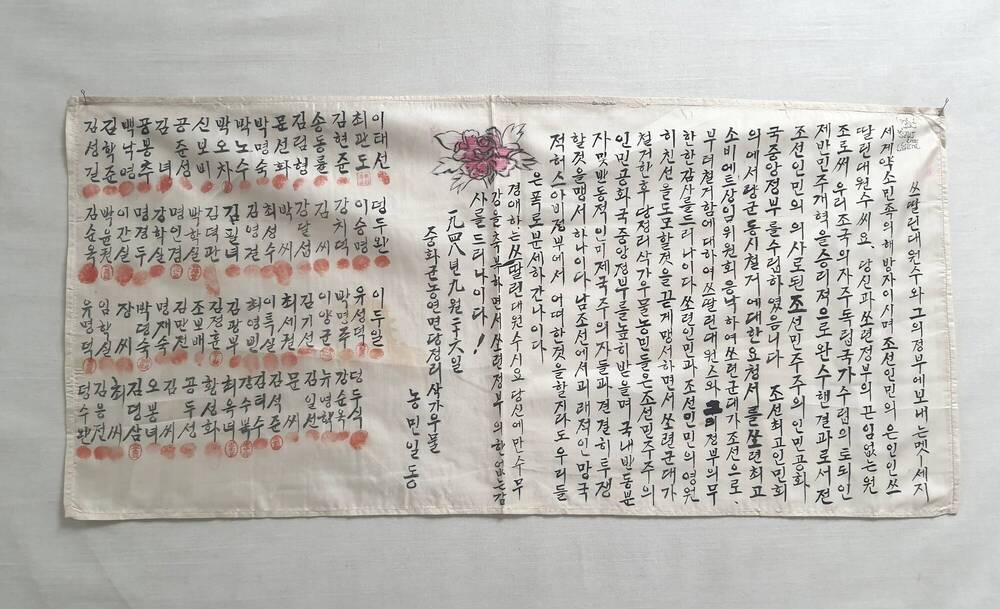 쓰딸린대원수와그의정부에보내는멧ー세지
세계약소민족의해방자이시며조선인민의은인인쓰
딸린대원수씨요、당신과쏘련정부의끈임없는원
조로써우리조국의자주독립국가수립의토되인
제반민주개혁을승리적으로완수핸결과로서전
조선인민의의사로된조선민주주의인민공화
국중앙정부를수립하였음니다 조선최고인민회
의에서양군동시철거에대한요청서를쏘련최고
소비에트상임위원회응낙하여쏘련군대가조선으로、
부터철거함에대하여쓰딸린대원스와그의정부의무
한한감사를드리나이다쏘련인민과조선인민의영원
히친선을도모할것을끔게맹서하면서쏘련군대가
철거한후당정리삭가우물농민들은조선민주주의
인민공화국중앙정부를높히받을며국내반동분
자및반동적인미제국주의자들과견결히투쟁
할것을맹서하나이다남조선에서괴래적인망국
적허스아비정부에서어떠한것을할지라도우리들
은폭로분세하간나이다
경애하는쓰딸린대원수시요당신에만수무
강을축부하면서쏘련정부의한없는감
사를드리나이다!
一九四八년九월二十六일
중화군농연면당정리삭가우물
농민일동
이태선
최관도
김현준
송동률
김덕형
문선화
박명숙
박노수
박오차
신보비
공준성
김녀
공봉추
백낙영
김학준
김성길
덩두완
이승명
강치덕
김씨
강달섭
박씨
최성수
김영결
김필녀
김덕관
박씨
명인경
강학실
이간실
박윤권
김순옥
이두일
유성덕
박명주
이양군
김기선
최세권
이특실
최영빈
김광부
김정훈
조보배
김만전
명재수
박덩숙
장씨
임학실
유명덕
덩두식
강순옥
뉴영학
김일선
문씨
김성준
김터수
강수복
최옥녀
황성화
공두성
김씨
오봉녀
김덩삼
최씨
김용전
덩수완